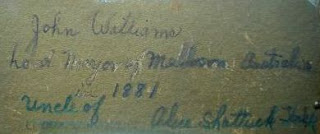 John Williams
Lord Mayor of Melborn Australia
in 1881
Uncle of
Alice Shattuck